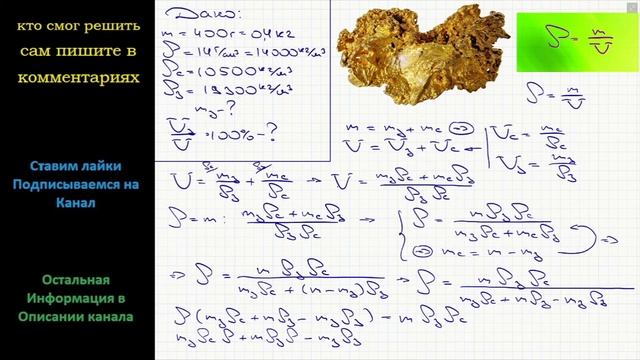 кто смог решить
сам пишите в
комментариях
Ставим лайки
Подписываемся на
Канал
Остальная
Информация в
Описании канала
Дано:
m = 400г = 0,4 кг
ρ = 14 г/см³ = 14000 кг/м³
ρс = 10500 кг/м³
ρз = 19300 кг/м³
mз - ?
Vз/V · 100% - ?
ρ = m/V
ρ = m/V
m = mз + mс ⇒
V = Vз + Vс
Vс = mс/ρс
Vз = mз/ρз
V = mз/ρз + mс/ρс → V = (mзρс + mсρз)/(ρзρс)
ρ = m : (mзρс + mсρз)/(ρзρс) → ρ = mρзρс/(mзρс + mсρз)
⇒ mс = m - mз
⇒ ρ = mρзρс/(mзρс + (m - mз)ρз) → ρ = mρзρс/(mзρс + mρз - mзρз)
ρ(mзρс + mρз - mзρз) = mρзρс
mзρсρ + mρзρ - mзρз